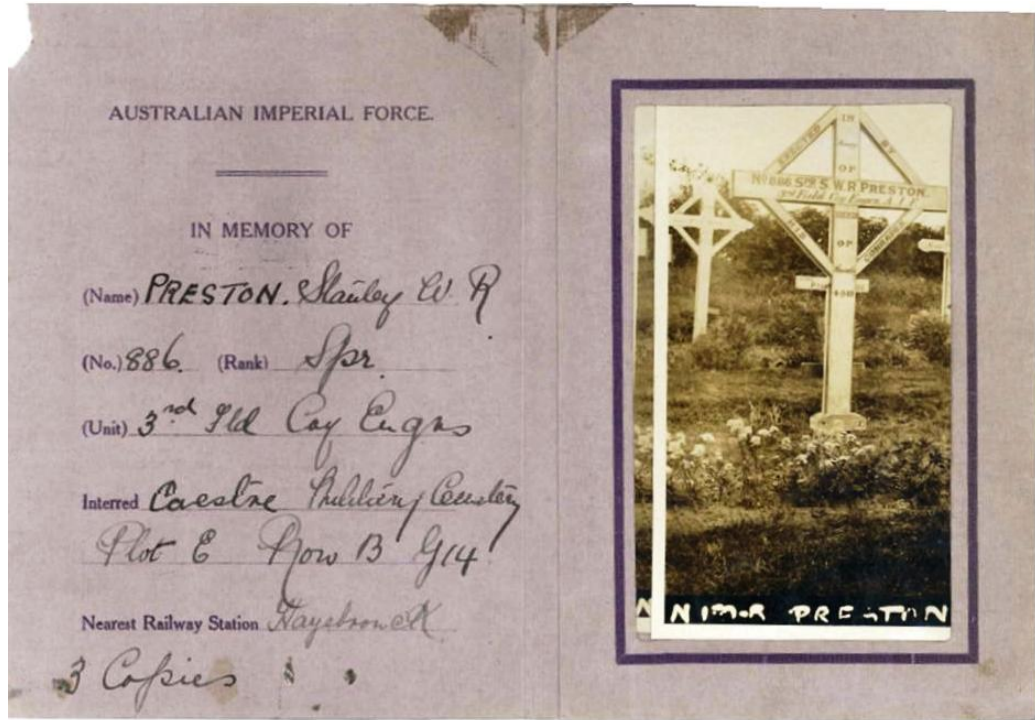 AUSTRALIAN IMPERIAL FORCE.
IN MEMORY OF
(Name) PRESTON. Stanley W. R
(No.) 886. (Rank) Spr.
(Unit) 3rd Fld Coy Engns
Interred Caestre Military Cemetery
Plot E Row B G14
Nearest Railway Station Hazebrouck
3 Copies
ERECTED BY
IN
OF
No 886 SPR S.W.R PRESTON.
3rd Field Coy Engrs A.I.F.
HIS COMRADES
OF
N NIMR PRESTON